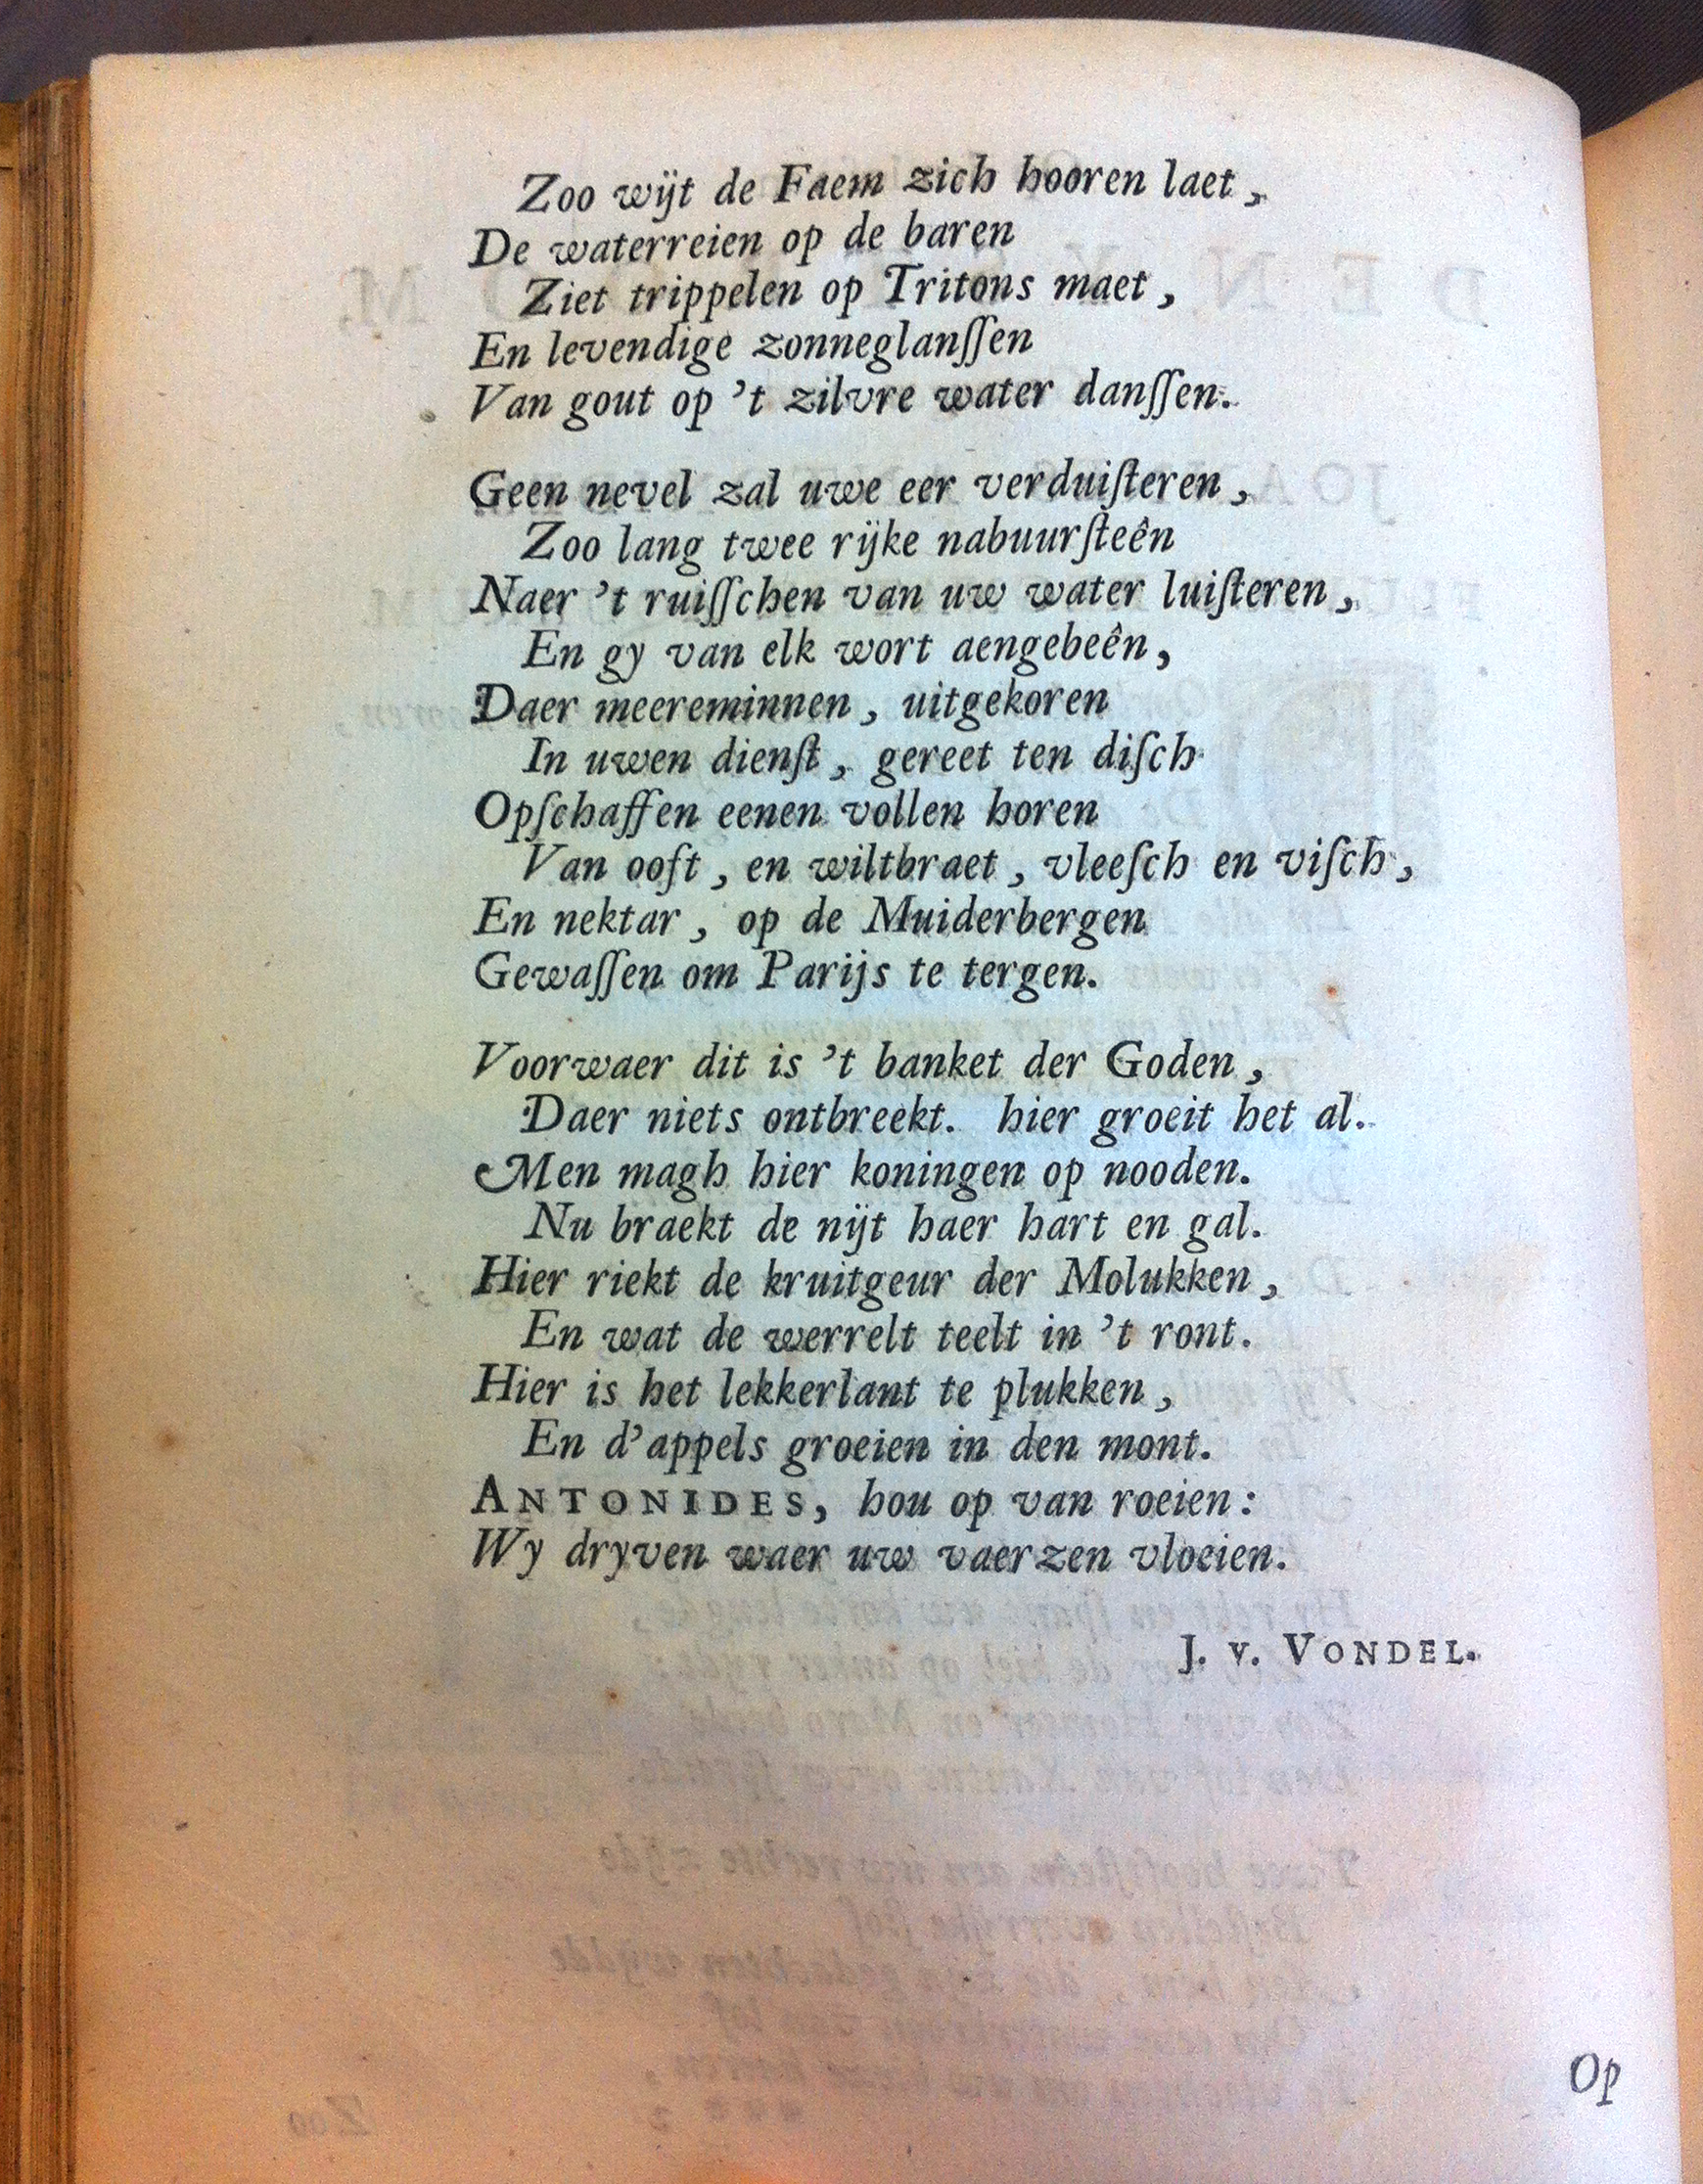 Zoo wijt de Faem zich hooren laet,
De waterreien op de baren
Ziet trippelen op Tritons maet,
En levendige zonneglanſſen
Van gout op 't zilvre water danſſen.
Geen nevel zal uwe eer verduiſteren,
Zoo lang twee rijke nabuurſteên
Naer 't ruiſſchen van uw water luiſteren,
En gy van elk wort aengebeên,
Daer meereminnen, uitgekoren
In uwen dienſt, gereet ten diſch
Opſchaffen eenen vollen horen
Van ooft, en wiltbraet, vleeſch en viſch,
En nektar, op de Muiderbergen
Gewaſſen om Parijs te tergen.
Voorwaer dit is 't banket der Goden,
Daer niets ontbreekt. hier groeit het al.
Men magh hier koningen op nooden.
Nu braekt de nijt haer hart en gal.
Hier riekt de kruitgeur der Molukken,
En wat de werrelt teelt in 't ront.
Hier is het lekkerlant te plukken,
En d'appels groeien in den mont.
ANTONIDES, hou op van roeien:
Wy dryven waer uw vaerzen vloeien.
J. v. VONDEL.
Op